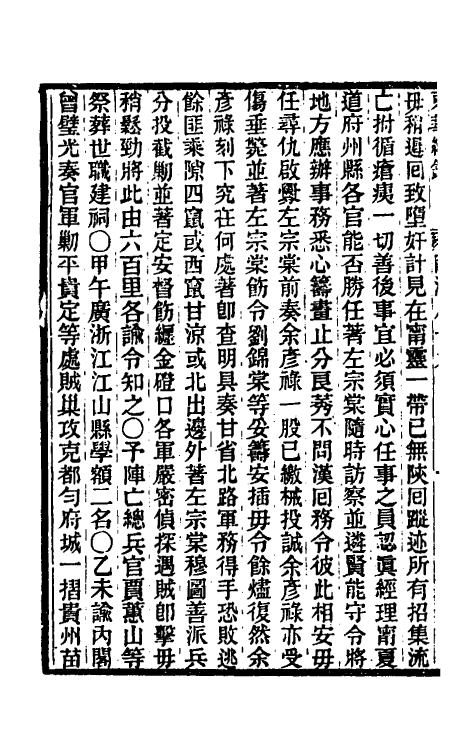 毋稍遲囘致墮奸計見在甯靈一帶已無陝囘蹤迹所有招集流
亡拊循瘡痍一切善後事宜必須實心任事之員認眞經理甯夏
道府州縣各官能否勝任著左宗棠隨時訪察並遴賢能守令將
地方應辦事務悉心籌畫止分良莠不問漢囘務令彼此相安毋
任尋仇啟釁左宗棠前奏余彥祿一股已繳械投誠余彥祿亦受
傷垂斃並著左宗棠飭令劉錦棠等妥籌安插毋令餘燼復然余
彥祿刻下究在何處著卽查明具奏甘省北路軍務得手恐敗逃
餘匪乘隙四竄或西竄甘涼或北出邊外著左宗棠穆圖善派兵
分投截勦並著定安督飭纒金磴口各軍嚴密偵探遇賊卽擊毋
稍鬆勁將此由六百里各諭令知之〇予陣亡總兵官賈蕙山等
祭葬世職建祠〇甲午廣浙江江山縣學額二名〇乙未諭內閣
曾璧光奏官軍勦平貴定等處賊巢攻克都勻府城一摺貴州苗